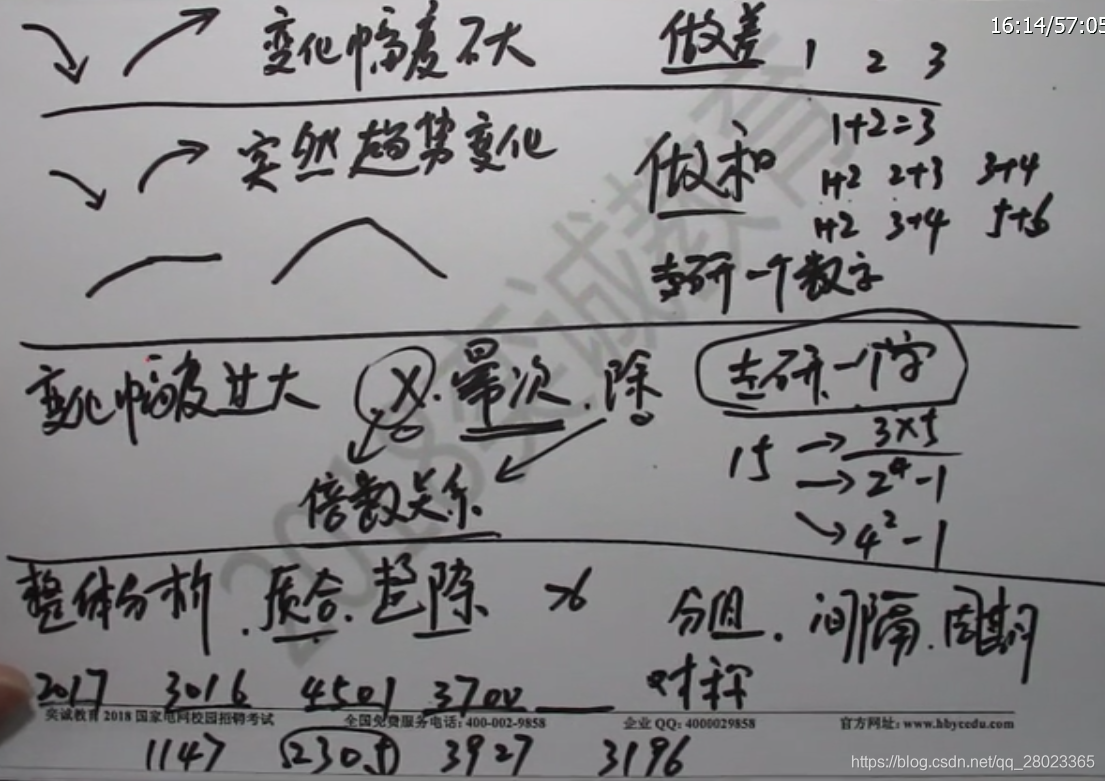 16:14/57:05
变化幅度不大 做差 1 2 3
突然趋势变化 做和 1+2=3
1+2 2+3 3+4
1+2 3+4 5+6
去研一个数字
变化幅度过大 X.幂次.除 去研一个字
15 → 3×5
→ 2⁴-1
倍数关系 → 4²-1
整体分析.质合.整除 >6 分组.间隔.周期
对称
2017 3016 4501 3700
奕诚教育 2018 国家电网校园招聘考试 全国免费服务电话: 400-002-9858 企业 QQ: 4000029858 官方网址: www.hbycedu.com
1147 2305 3927 3196
2018奕诚教育
https://blog.csdn.net/qq_28023365